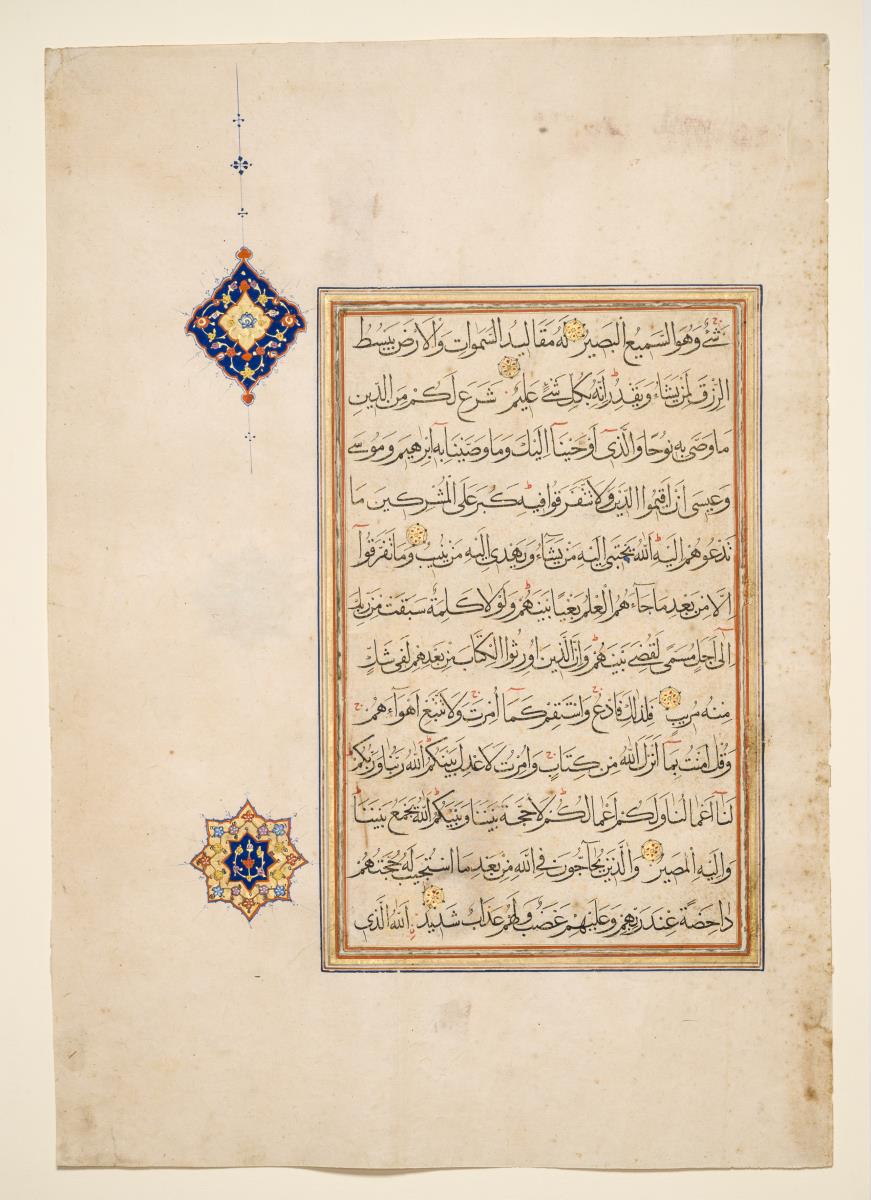 شَىْءٌ وَهُوَ السَّمِيعُ الْبَصِيرُ لَهُ مَقَالِيدُ السَّمٰوَاتِ وَالْاَرْضِ يَبْسُطُ
الرِّزْقَ لِمَنْ يَشَاءُ وَيَقْدِرُ اِنَّهُ بِكُلِّ شَىْءٍ عَلِيمٌ شَرَعَ لَكُمْ مِنَ الدِّينِ
مَا وَصّٰى بِهِ نُوحًا وَالَّذِى اَوْحَيْنَا اِلَيْكَ وَمَا وَصَّيْنَا بِهِ اِبْرٰهِيمَ وَمُوسٰى
وَعِيسٰى اَنْ اَقِيمُوا الدِّينَ وَلَا تَتَفَرَّقُوا فِيهِ كَبُرَ عَلَى الْمُشْرِكِينَ مَا
تَدْعُوهُمْ اِلَيْهِ اَللّٰهُ يَجْتَبِى اِلَيْهِ مَنْ يَشَاءُ وَيَهْدِى اِلَيْهِ مَنْ يُنِيبُ وَمَا تَفَرَّقُوا
اِلَّا مِنْ بَعْدِ مَا جَاءَهُمُ الْعِلْمُ بَغْيًا بَيْنَهُمْ وَلَوْلَا كَلِمَةٌ سَبَقَتْ مِنْ رَبِّكَ
اِلٰى اَجَلٍ مُسَمًّى لَقُضِىَ بَيْنَهُمْ وَاِنَّ الَّذِينَ اُورِثُوا الْكِتَابَ مِنْ بَعْدِهِمْ لَفِى شَكٍّ
مِنْهُ مُرِيبٍ فَلِذٰلِكَ فَادْعُ وَاسْتَقِمْ كَمَا اُمِرْتَ وَلَا تَتَّبِعْ اَهْوَاءَهُمْ
وَقُلْ اٰمَنْتُ بِمَا اَنْزَلَ اللّٰهُ مِنْ كِتَابٍ وَاُمِرْتُ لِاَعْدِلَ بَيْنَكُمْ اَللّٰهُ رَبُّنَا وَرَبُّكُمْ
لَنَا اَعْمَالُنَا وَلَكُمْ اَعْمَالُكُمْ لَا حُجَّةَ بَيْنَنَا وَبَيْنَكُمْ اَللّٰهُ يَجْمَعُ بَيْنَنَا
وَاِلَيْهِ الْمَصِيرُ وَالَّذِينَ يُحَاجُّونَ فِى اللّٰهِ مِنْ بَعْدِ مَا اسْتُجِيبَ لَهُ حُجَّتُهُمْ
دَاحِضَةٌ عِنْدَ رَبِّهِمْ وَعَلَيْهِمْ غَضَبٌ وَلَهُمْ عَذَابٌ شَدِيدٌ اَللّٰهُ الَّذِى